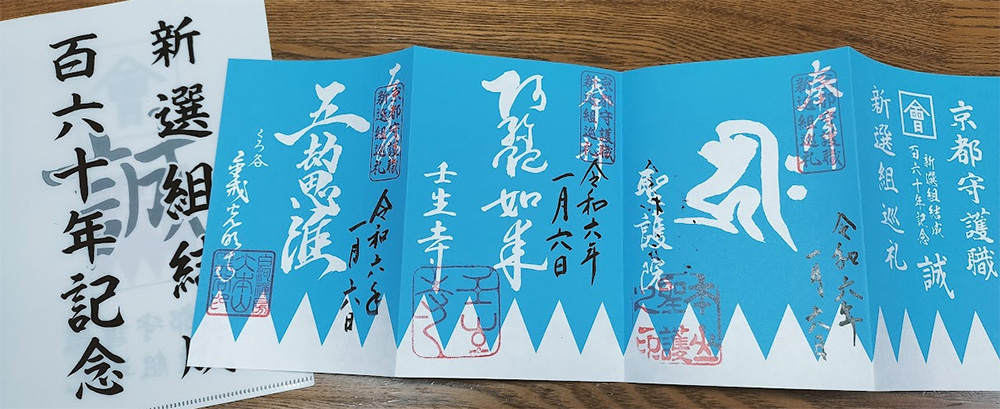 新選組結成
百六十年記念
誠
會
京都守護職
會
新選組結成
百六十年記念
誠
新選組巡礼
奉拝
京都守護職
新選組巡礼
聖護院
令和六年
一月六日
奉拝
京都守護職
新選組巡礼
阿弥陀如来
壬生寺
令和六年
一月六日
京都守護職
新選組巡礼
五劫思惟
くろ谷
令和六年
一月六日